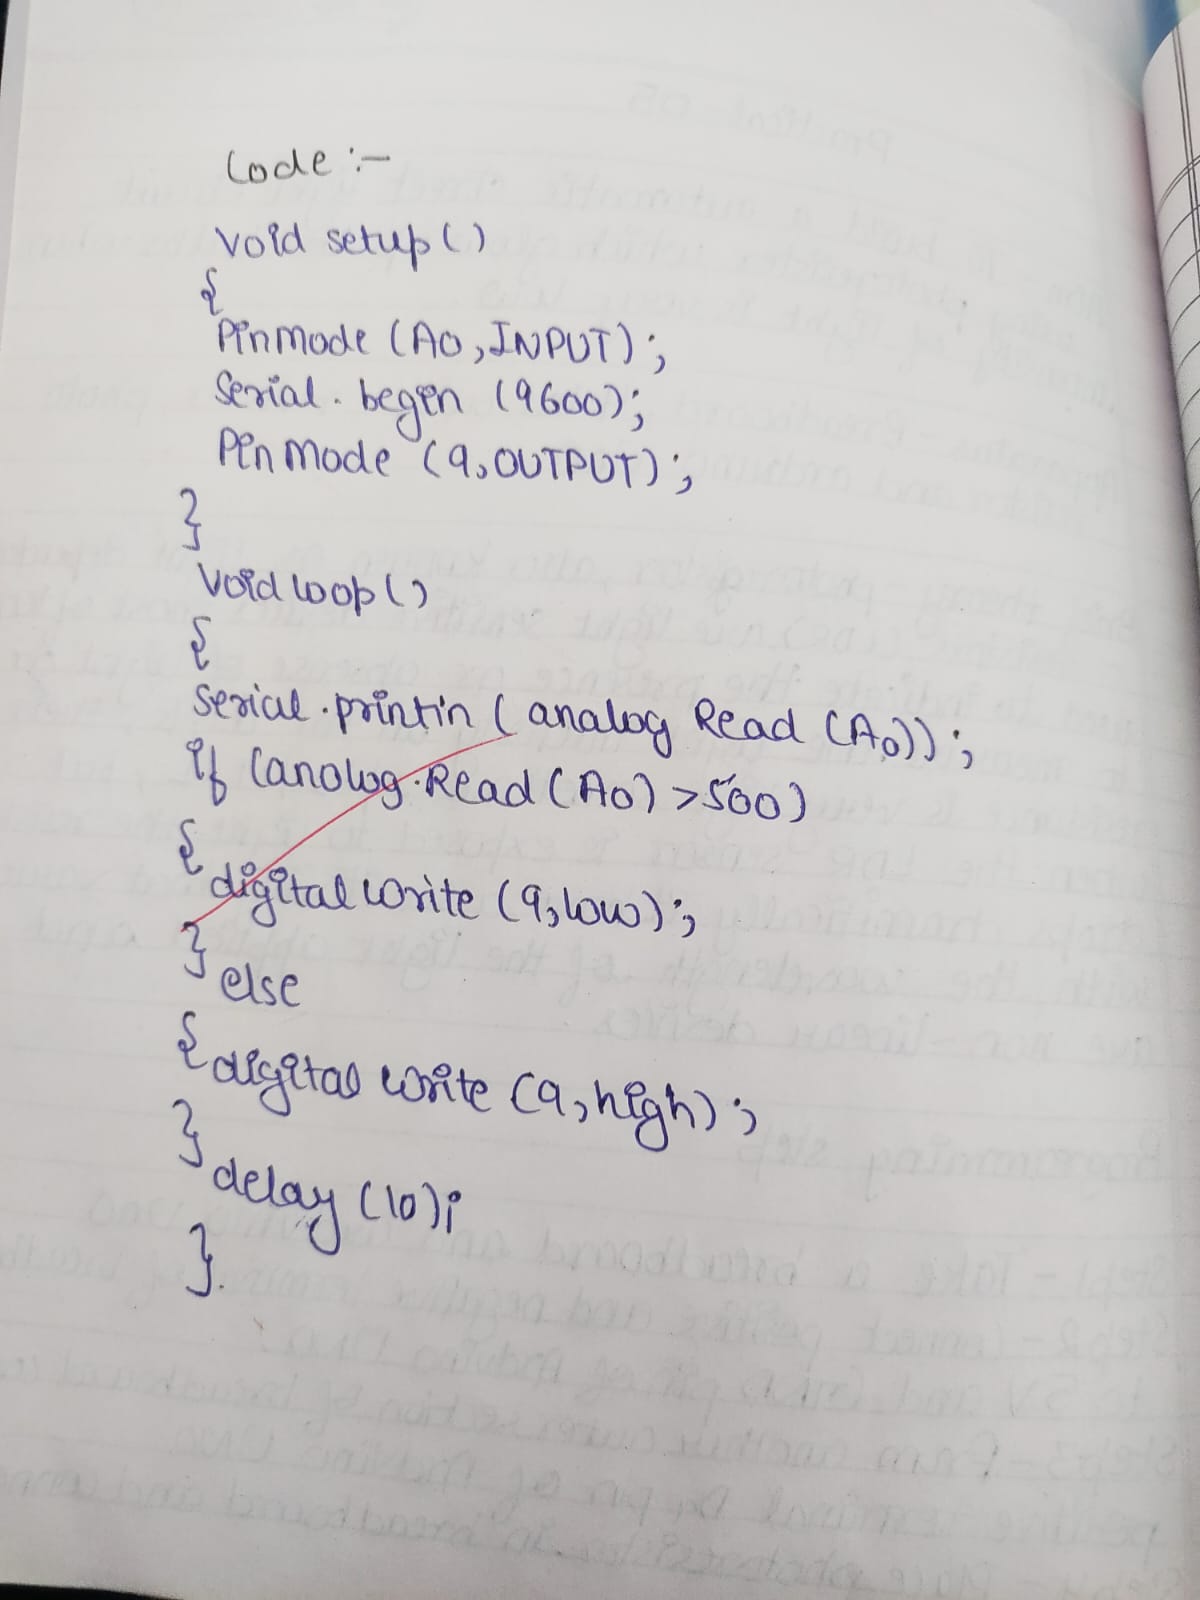 Code :-
void setup()
{
Pinmode (A0,INPUT);
Serial. begin (9600);
Pin Mode (9,OUTPUT);
}
void loop()
{
Serial.printin ( analog Read (A0));
if (anolog.Read (A0) >500)
{
digital write (9,low);
}
else
{
digital write (9,high);
}
delay (10);
}.